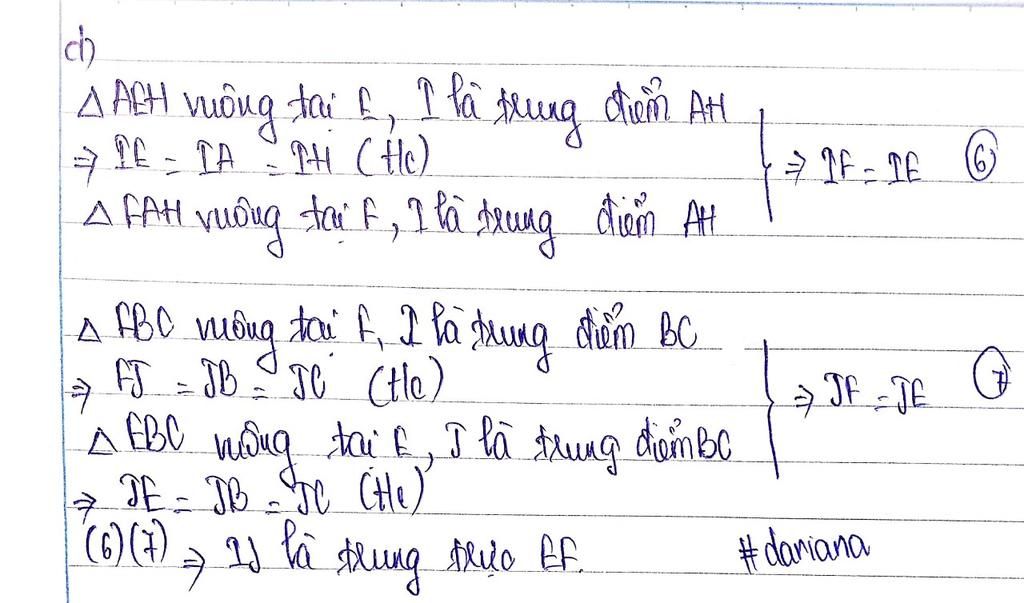 d)
△ AEH vuông tại E, I là trung điểm AH
⇒ IE = IA = IH (t/c)
⇒ IF = IE (6)
△ FAH vuông tại F, I là trung điểm AH
△ FBC vuông tại F, J là trung điểm BC
⇒ FJ = JB = JC (t/c)
⇒ JF = JE (7)
△ EBC vuông tại E, J là trung điểm BC
⇒ JE = JB = JC (t/c)
(6)(7) ⇒ IJ là trung trực EF.
#dariana